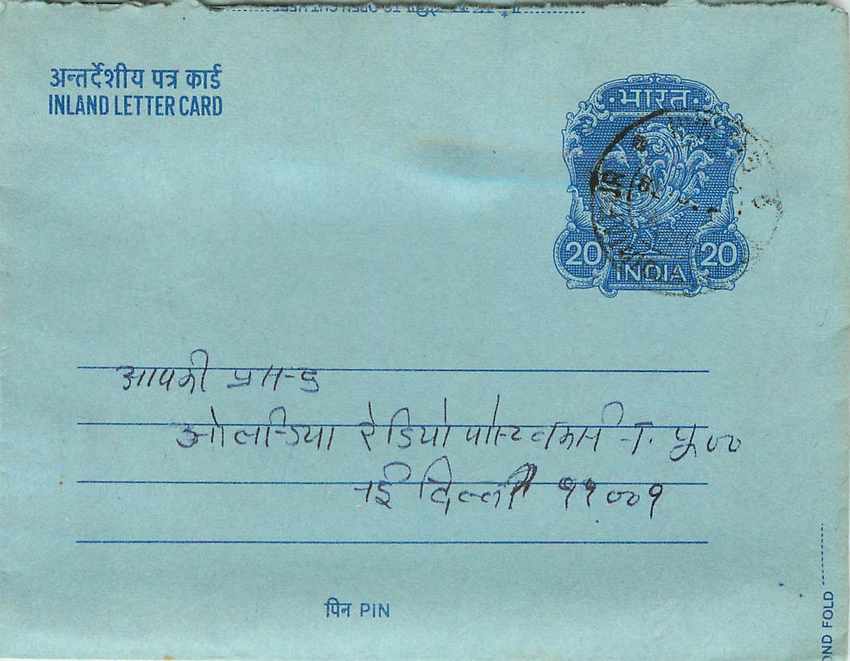 अन्तर्देशीय पत्र कार्ड
INLAND LETTER CARD
भारत
20 20
INDIA
आपकी पसन्द
ओलन्डिया रेडियो पोस्ट बक्स नं. ५००
नई दिल्ली ११००१
पिन PIN
OND FOLD